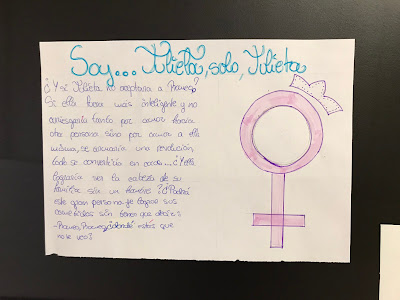 Soy... Julieta, solo, Julieta
¿Y si Julieta no aceptara a Romeo?
Si ella fuera más inteligente y no
arriesgara tanto por amor hacia
otra persona sino por amor a ella
misma, se armaría una revolución
todo se convertiría en caos... ¿Y ella
lograría ser la cabeza de su
familia sin un hombre? ¿Podrá
esta gran persona lograr sus
cometidos sin tener que decir:
-Romeo, Romeo ¿dónde estás que
no te veo?